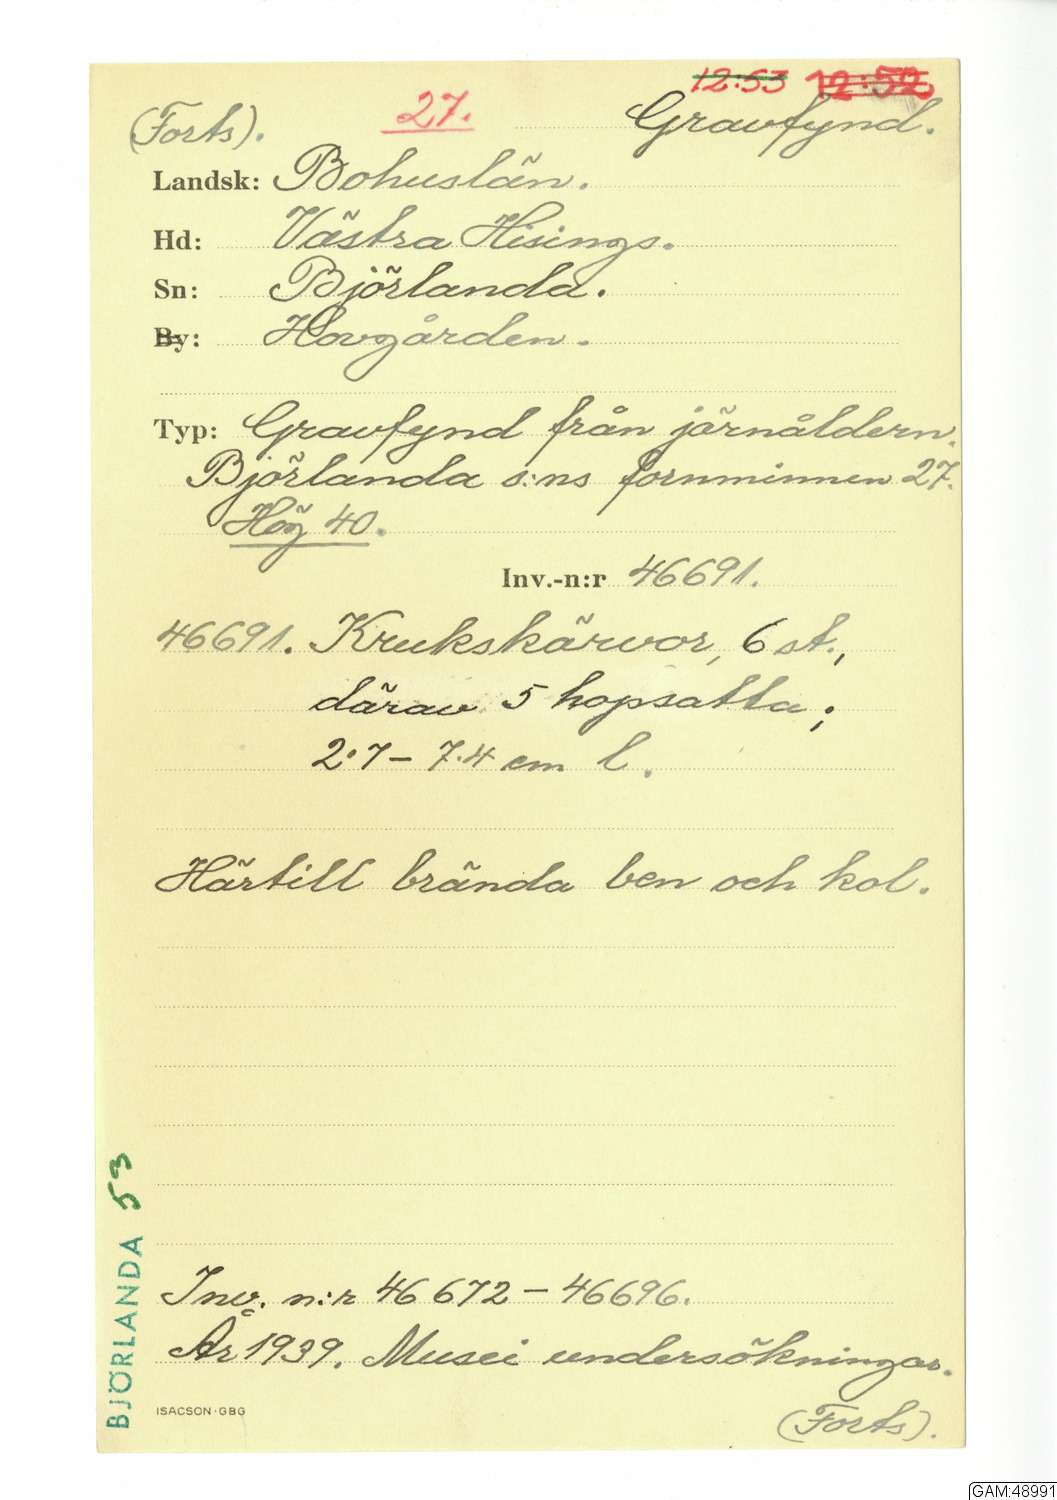 12:53 12:52
(Forts). 27. Gravfynd.
Landsk: Bohuslän.
Hd: Västra Hisings.
Sn: Björlanda.
By: Hovgården.
Typ: Gravfynd från järnåldern.
Björlanda s:ns fornminnen 27.
Hög 40.
Inv.-n:r 46691.
46691. Krukskärvor, 6 st.,
därav 5 hopsatta;
2.7 – 7.4 cm l.
Härtill brända ben och kol.
Inv. n:r 46 672 – 46696.
År 1939. Musei undersökningar.
(Forts).
ISACSON·GBG
BJÖRLANDA 53
GAM:48991